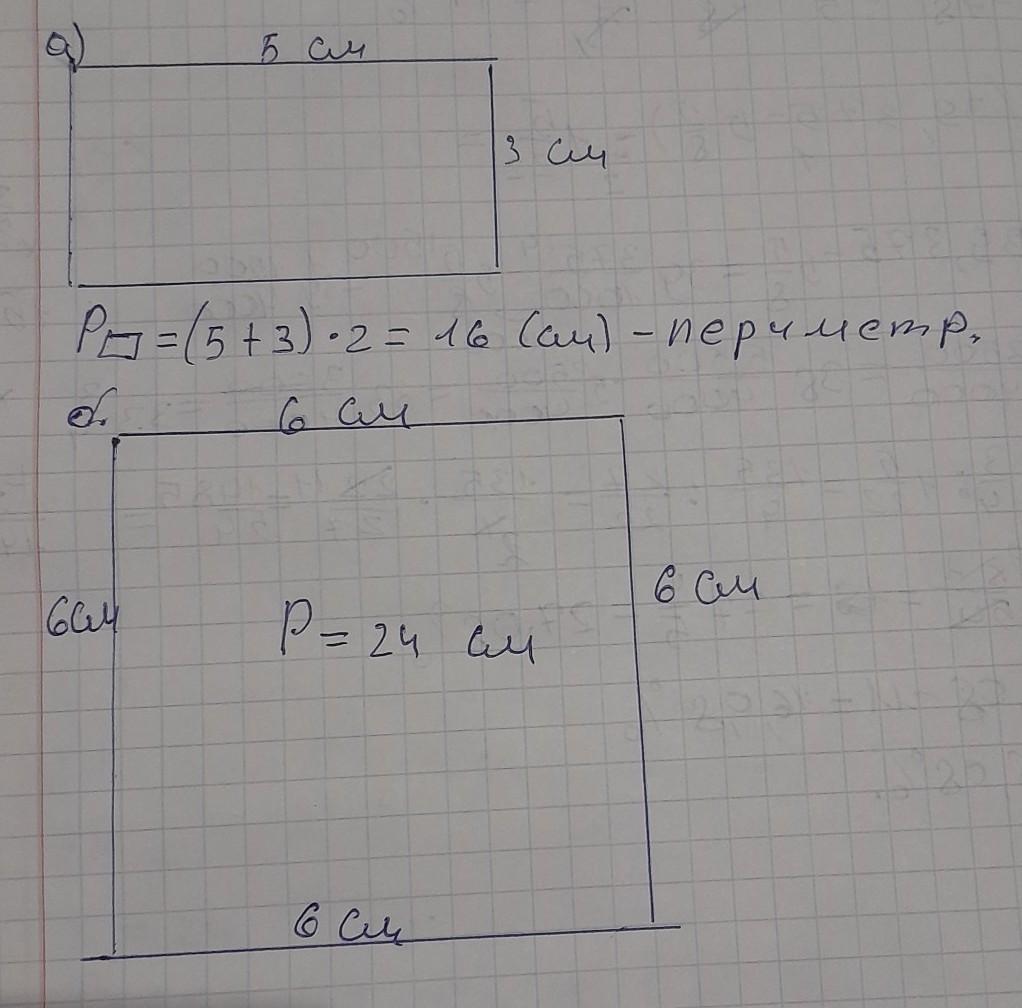 а)
5 см
3 см
P▭ = (5 + 3) · 2 = 16 (см) - периметр.
б.
6 см
6 см
6см
P = 24 см
6 см